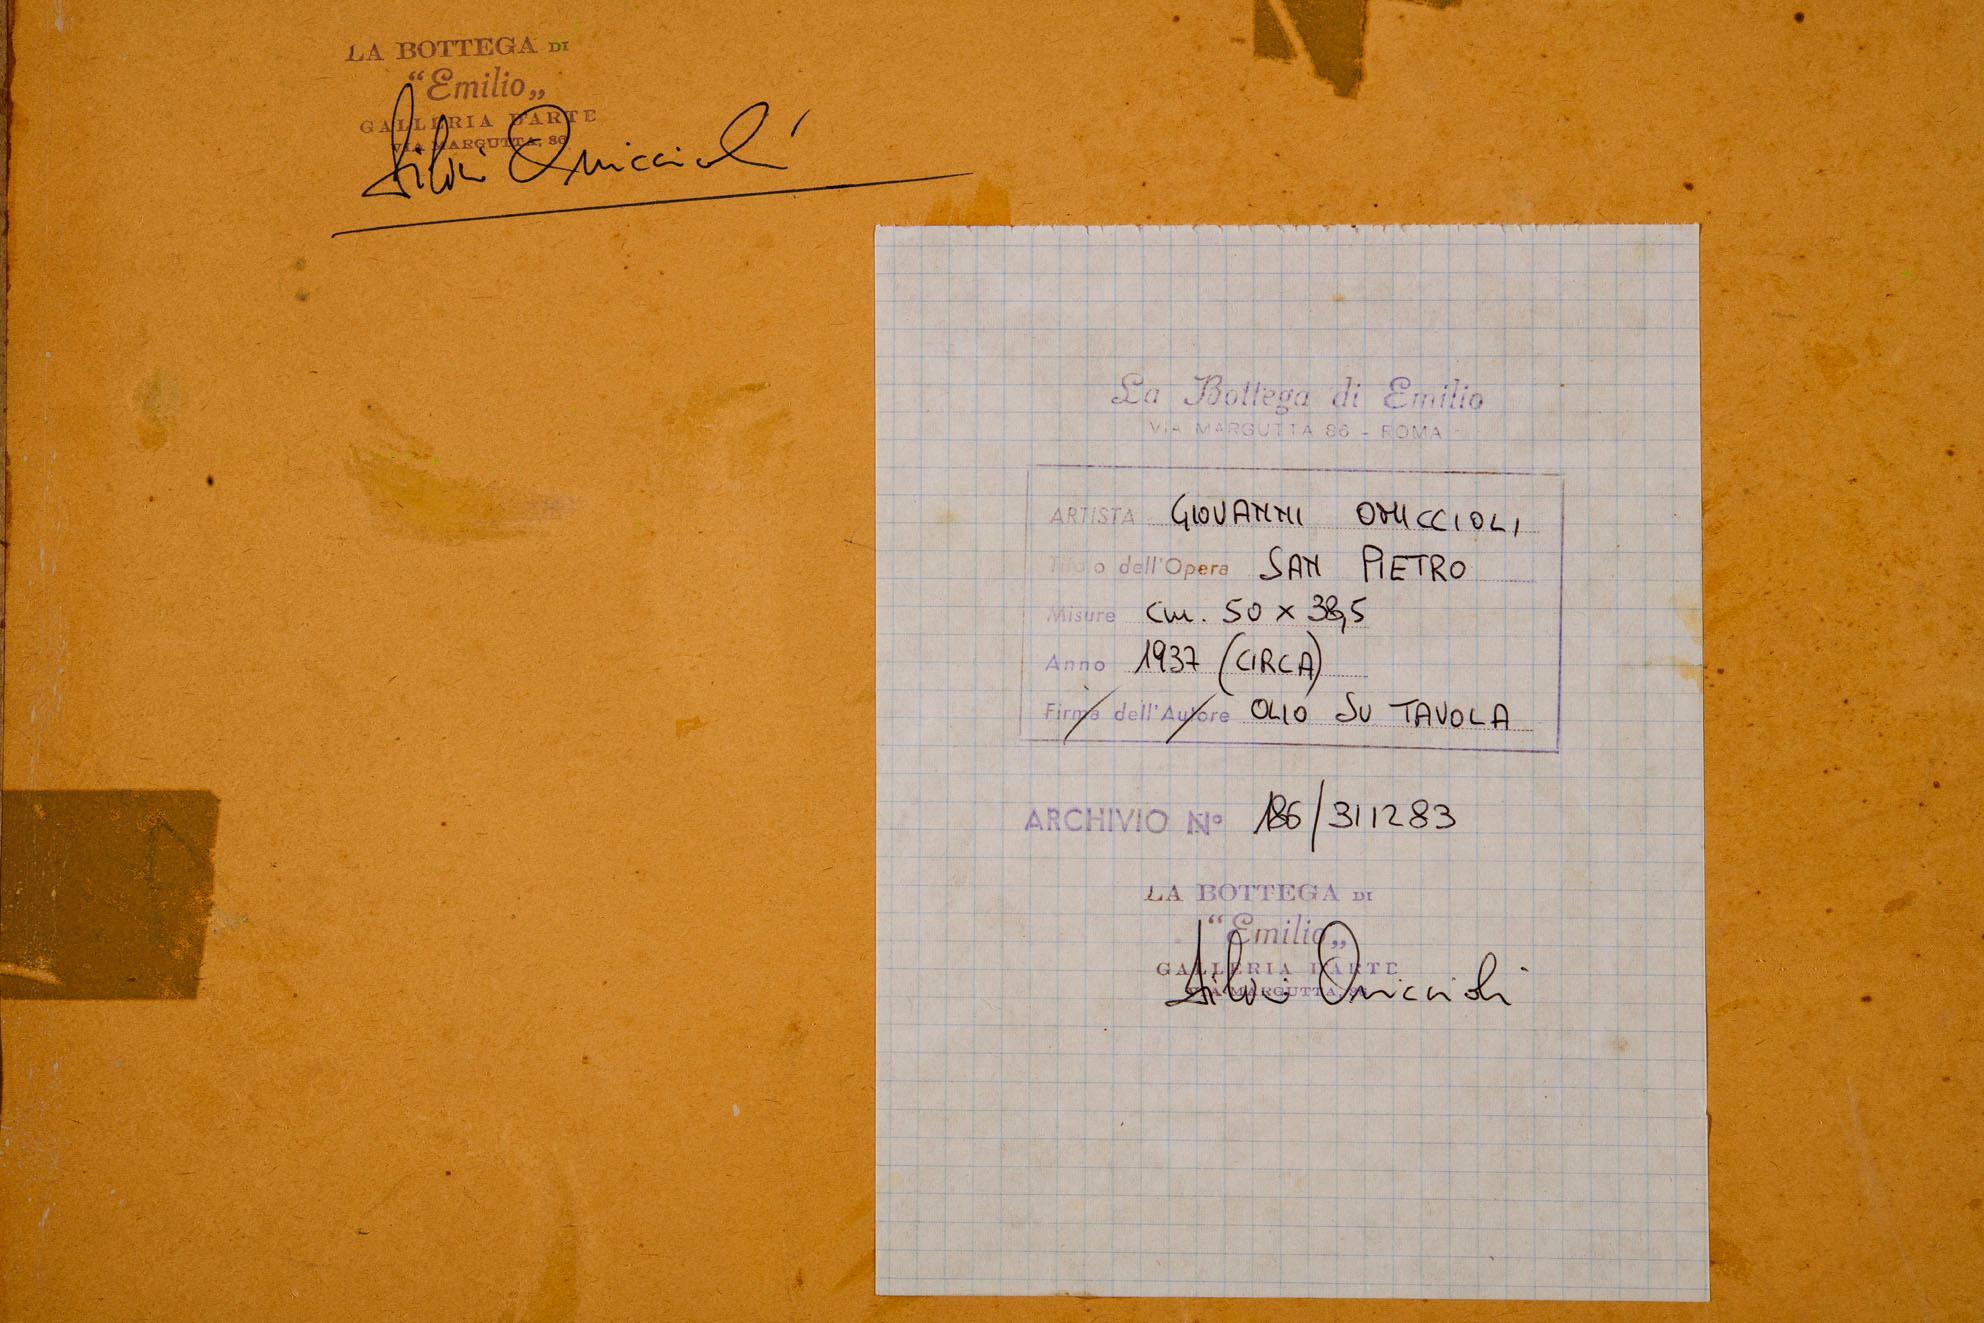 LA BOTTEGA DI
"Emilio„
GALLERIA D'ARTE
VIA MARGUTTA, 86
Silvi Omiccioli
La Bottega di Emilio
VIA MARGUTTA 86 - ROMA
ARTISTA GIOVANNI OMICCIOLI
Titolo dell'Opera SAN PIETRO
Misure cm. 50 x 38,5
Anno 1937 (CIRCA)
Firma dell'Autore OLIO SU TAVOLA
ARCHIVIO N° 186/311283
LA BOTTEGA DI
"Emilio„
GALLERIA D'ARTE
VIA MARGUTTA, 86
Silvi Omiccioli